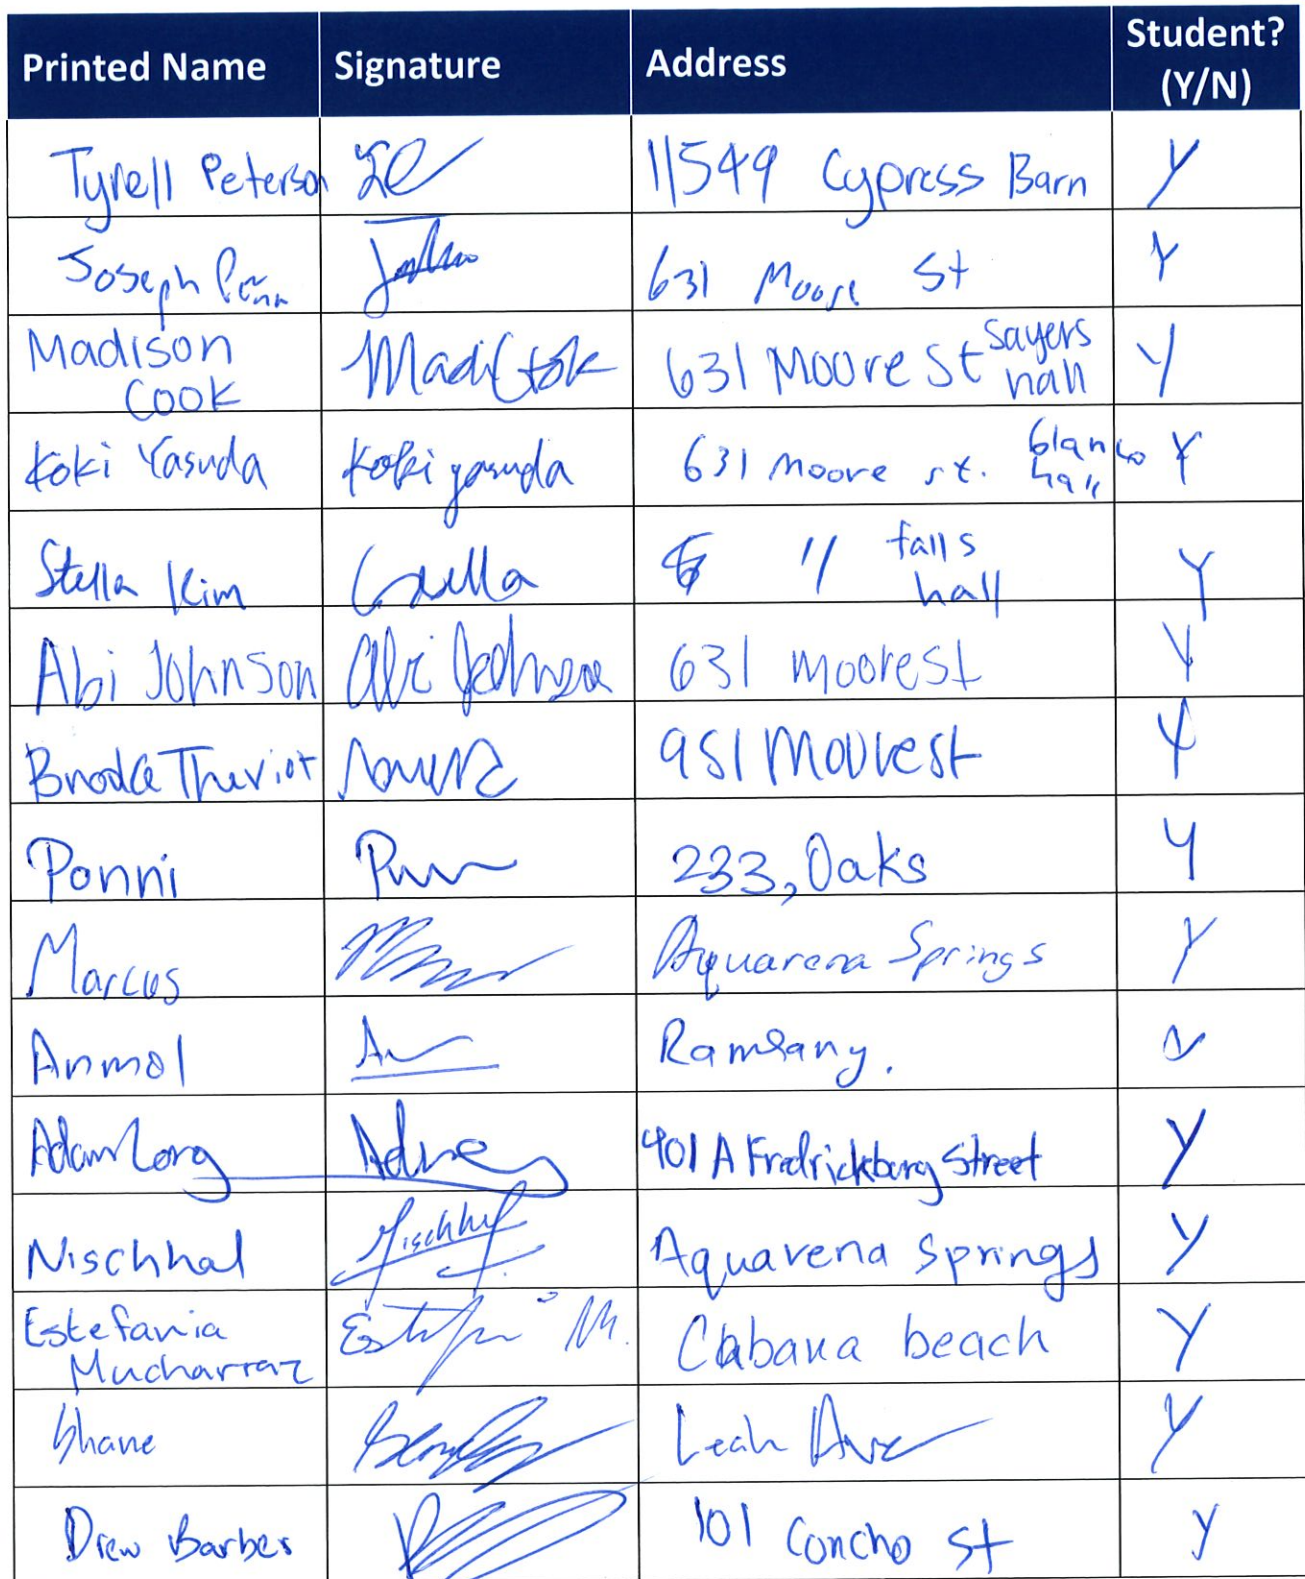 Printed Name Signature Address Student? (Y/N)
Tyrell Peterson 11549 Cypress Barn Y
Joseph 631 Moore St Y
Madison Cook Madi Cook 631 Moore St Sayers hall Y
Koki Yasuda Koki yasuda 631 moore st. blanco hall Y
Stella Kim Stella " falls hall Y
Abi Johnson Abi Johnson 631 moore st Y
Theriot 951 Moore st Y
Ponni 233, Oaks Y
Marcus Aquarena Springs Y
Anmol Ramsany. N
Adam Long 401 A Fredricksburg Street Y
Nischhal Nischhal Aquarena Springs Y
Estefania Mucharraz M. Cabana beach Y
Shane Leah Ave Y
Drew Barber 101 Concho St y